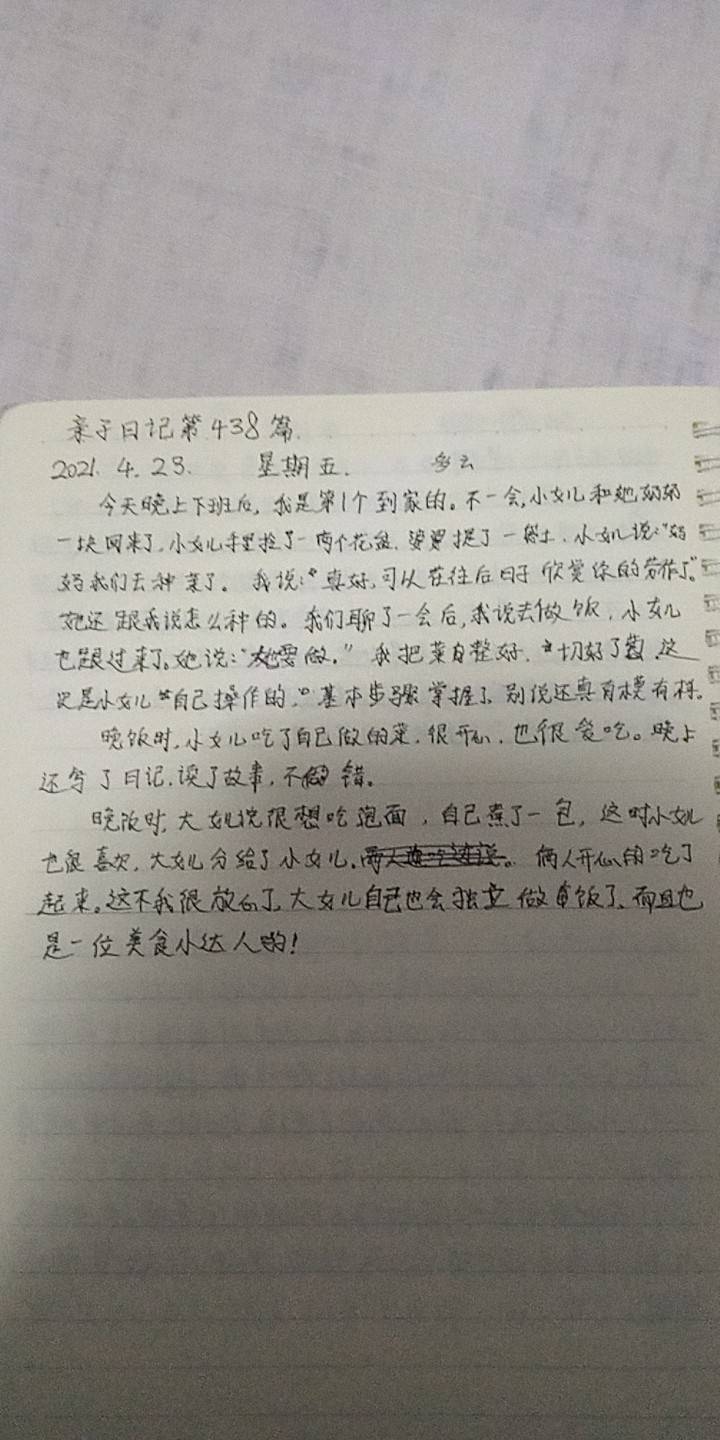 亲子日记第438篇.
2021. 4. 23. 星期五. 多云
今天晚上下班后, 我是第1个到家的。不一会,小女儿和她奶奶
一块回来了,小女儿手里捡了一两个花盆, 婆婆提了一袋土. 小女儿说:“妈
妈我们去种菜了。我说:“真好,可以在往后日子欣赏你的劳作了。”
她还跟我说怎么种的。我们聊了一会后,我说去做饭, 小女儿
也跟过来了。她说:“她要做。”我把菜自整好, 切好了 这
只是小女儿“自己操作的,”基本步骤掌握了, 别说还真有模有样。
晚饭时,小女儿吃了自己做的菜, 很开心, 也很爱吃。晚上
还写了日记,读了故事, 不错。
晚饭时, 大女儿说很想吃泡面, 自己煮了一包, 这时小女儿
也很喜欢, 大女儿分给了小女儿, 俩人开心的吃了
起来。这不我很放心了, 大女儿自己也会独立做单饭了, 而且也
是一位美食小达人哟!